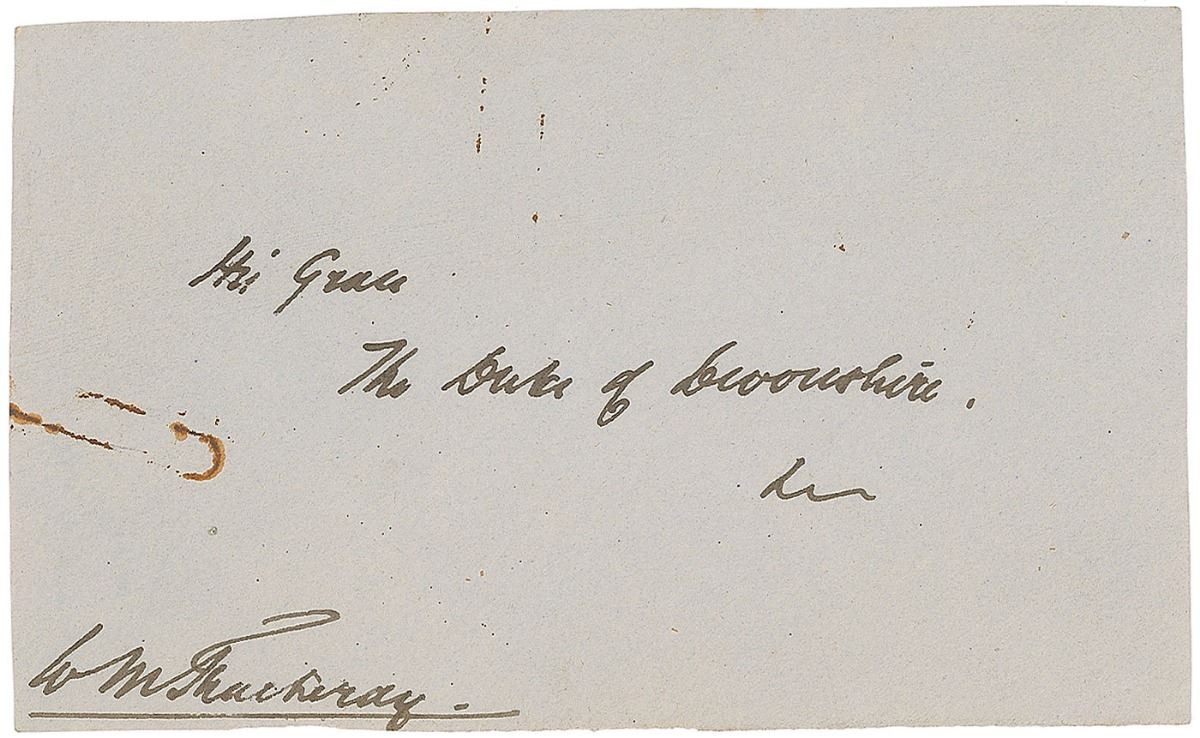 His Grace
The Duke of Devonshire.
W M Thackeray.